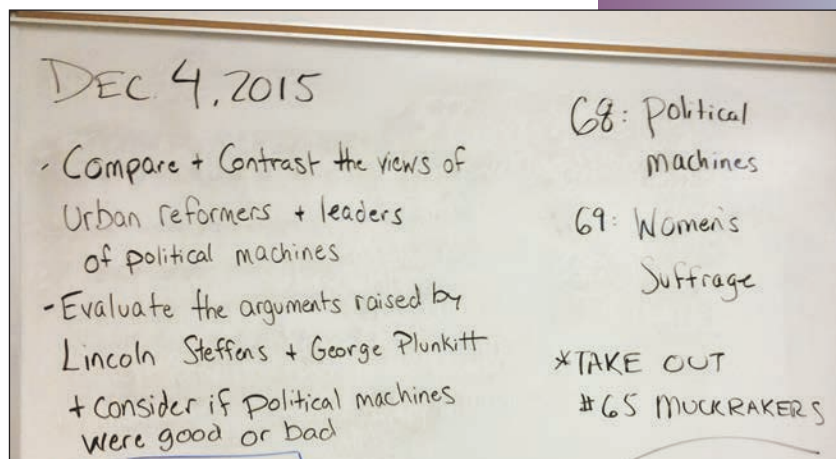 DEC. 4, 2015
- Compare + Contrast the views of
Urban reformers + leaders
of political machines
- Evaluate the arguments raised by
Lincoln Steffens + George Plunkitt
+ consider if political machines
were good or bad
68: Political
machines
69: Women's
Suffrage
*TAKE OUT
#65 MUCKRAKERS